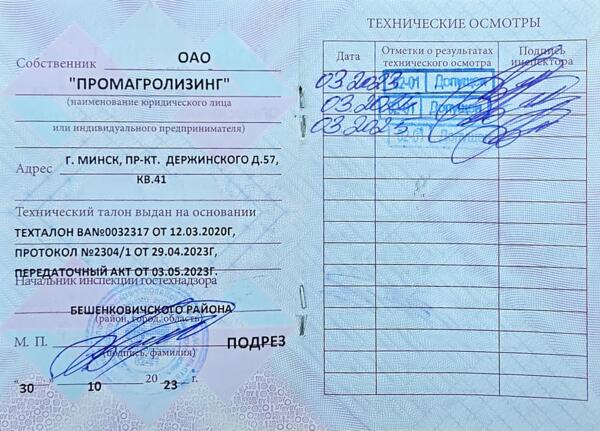 Собственник ОАО
"ПРОМАГРОЛИЗИНГ"
(наименование юридического лица
или индивидуального предпринимателя)
Адрес Г. МИНСК, ПР-КТ. ДЕРЖИНСКОГО Д.57,
КВ.41
Технический талон выдан на основании
ТЕХТАЛОН ВАN№0032317 ОТ 12.03.2020Г,
ПРОТОКОЛ №2304/1 ОТ 29.04.2023Г,
ПЕРЕДАТОЧНЫЙ АКТ ОТ 03.05.2023Г.
Начальник инспекции гостехнадзора
БЕШЕНКОВИЧСКОГО РАЙОНА
(район, город, область)
М. П. ПОДРЕЗ
(подпись, фамилия)
"30 10 20 23 г.
ТЕХНИЧЕСКИЕ ОСМОТРЫ
Дата Отметки о результатах технического осмотра Подпись инспектора
03.2023 02-01 Допущен
03.2024 02-01 Допущен
03.2025 02-01 Допущен